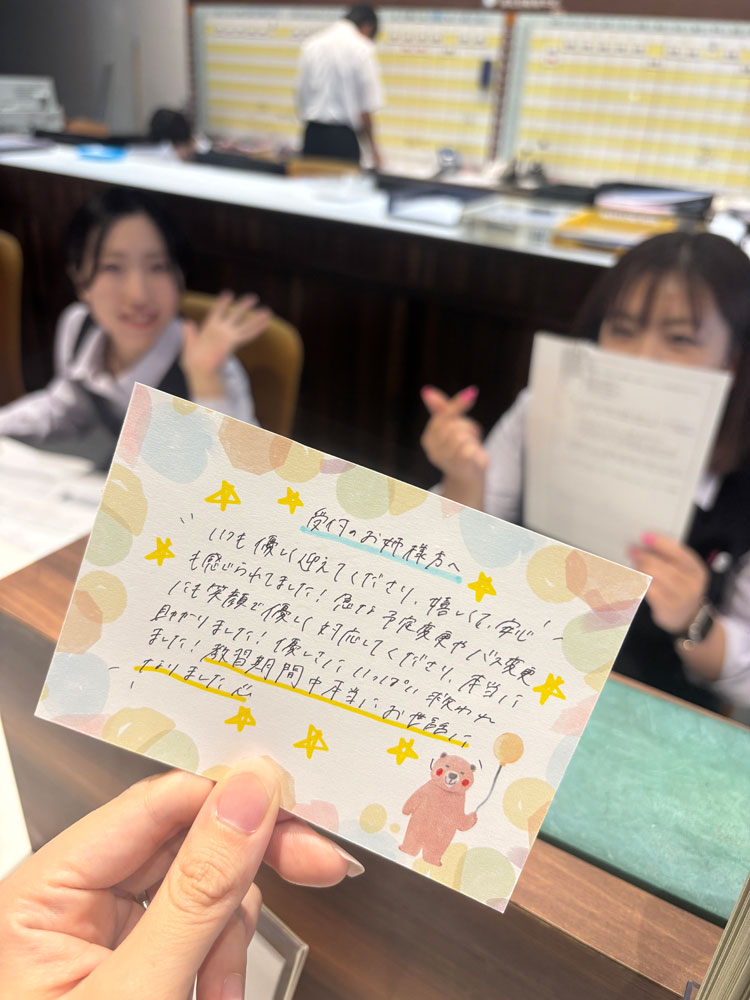 受付のお姉様方へ
いつも優しく迎えてくださり、嬉しくて、安心
も感じられてました！急な予定変更やバス変更
にも笑顔で優しく対応してくださり、本当に
助かりました！優しさにいっぱい救われ
ました！教習期間中本当にお世話に
なりました